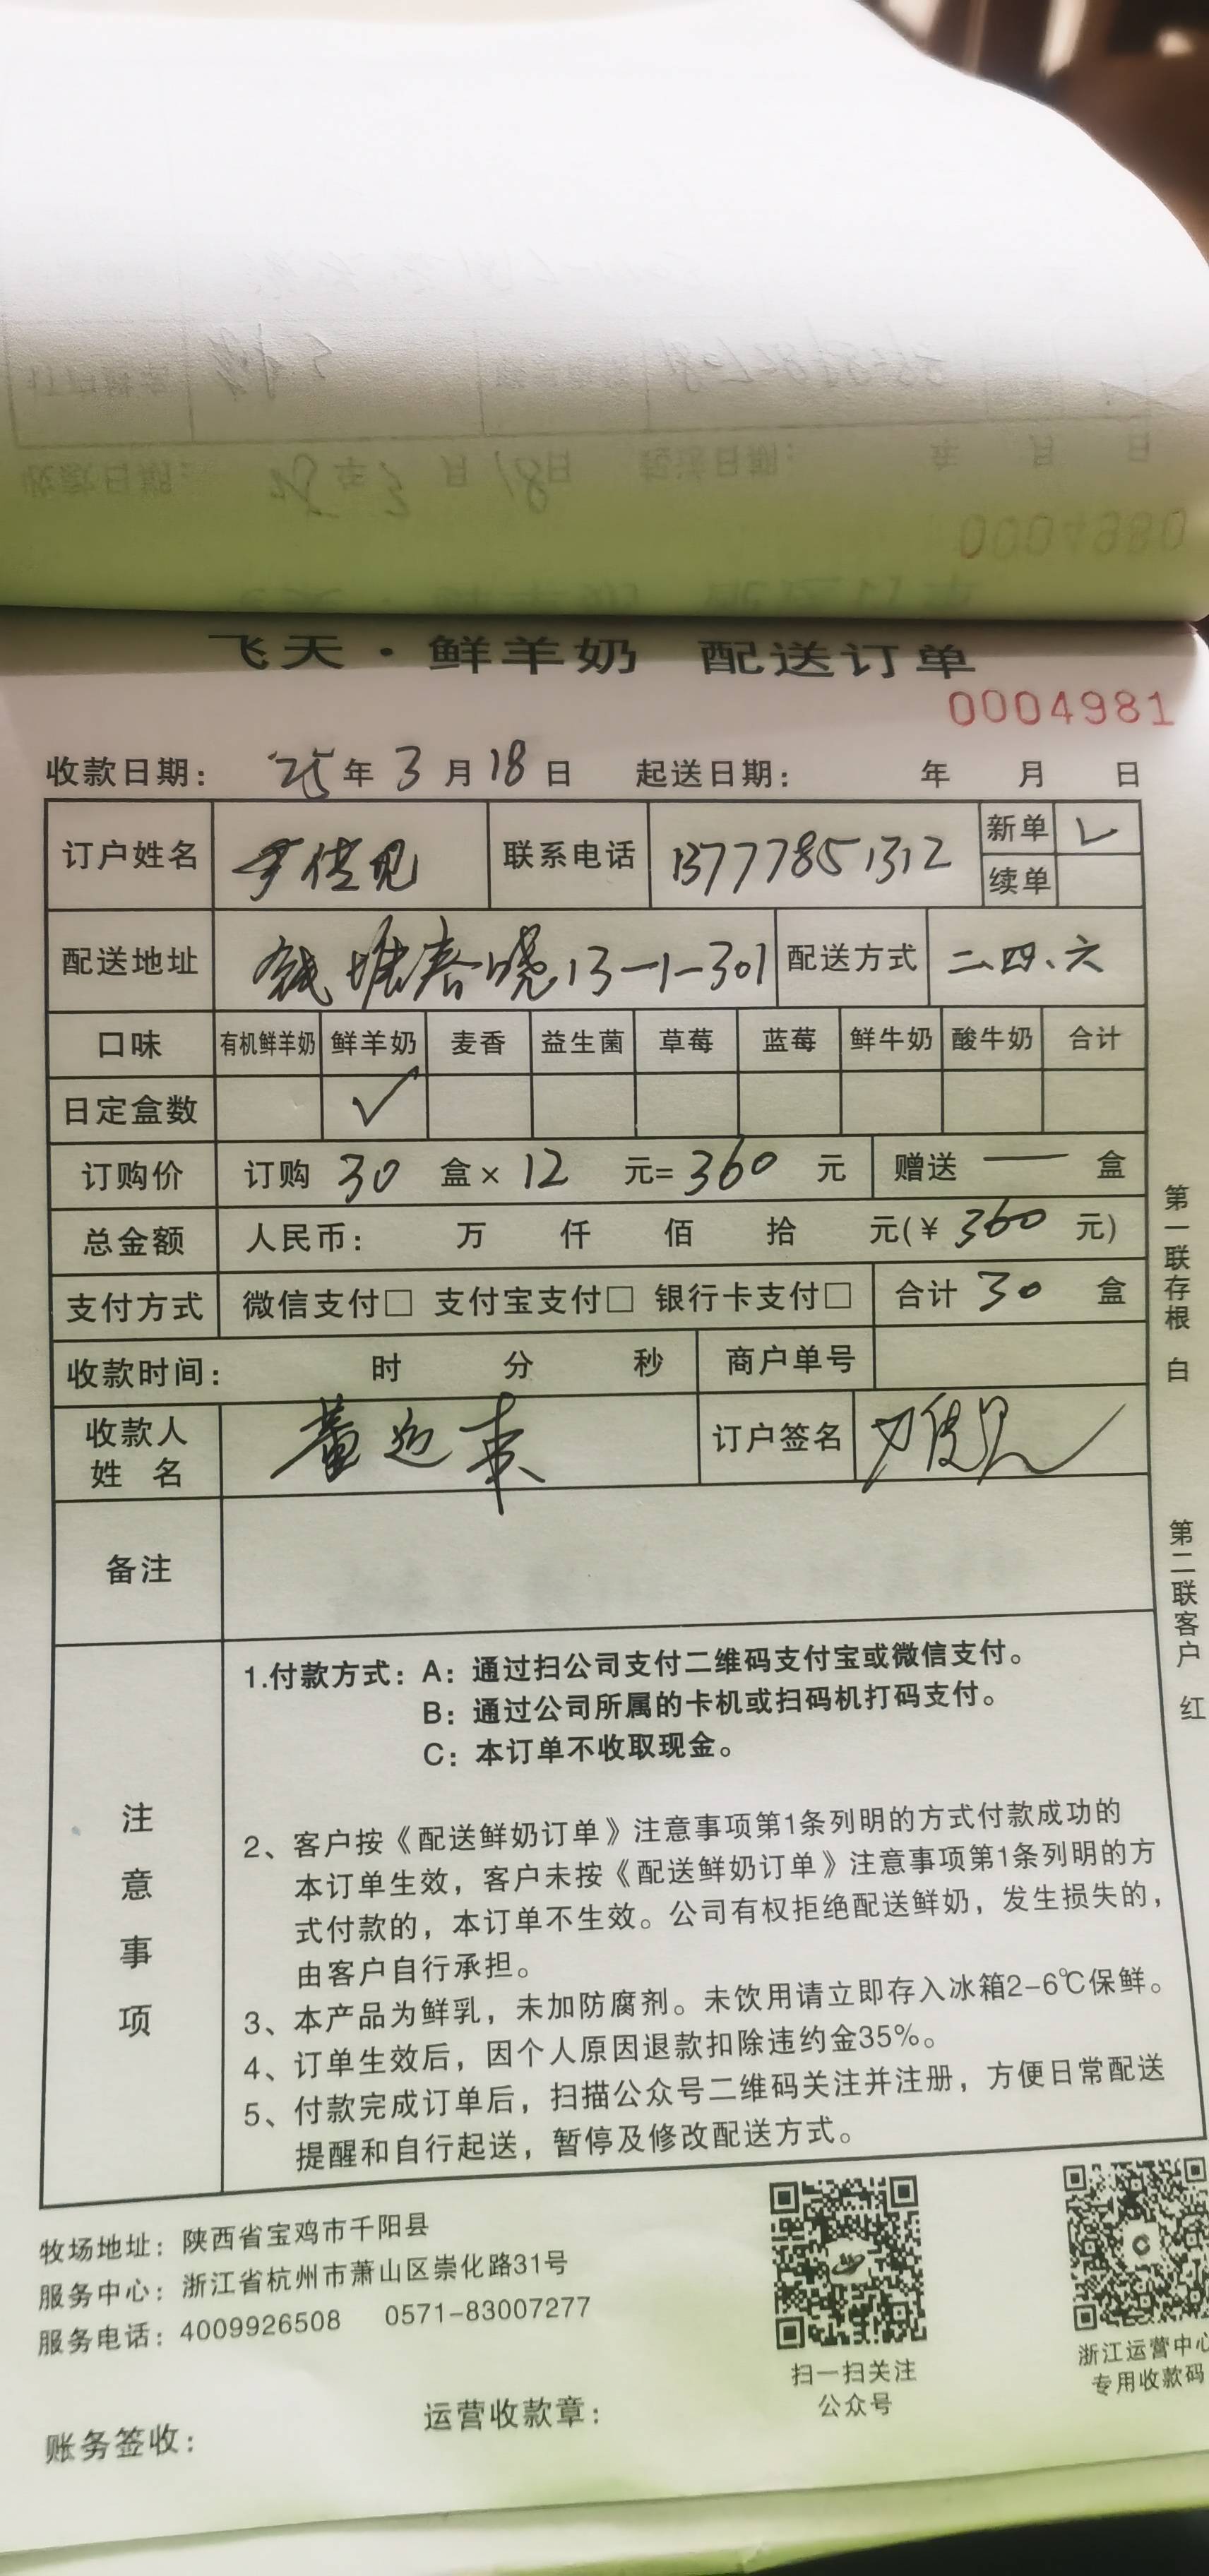 飞天·鲜羊奶 配送订单
0004981
收款日期： 25年 3月 18日 起送日期： 年 月 日
订户姓名 联系电话 13777851312 新单 ✓
续单
配送地址 钱塘春晓13-1-301 配送方式 二、四、六
口味 有机鲜羊奶 鲜羊奶 麦香 益生菌 草莓 蓝莓 鲜牛奶 酸牛奶 合计
日定盒数 ✓
订购价 订购 30 盒× 12 元= 360 元 赠送 — 盒
总金额 人民币： 万 仟 佰 拾 元(¥ 360 元)
支付方式 微信支付□ 支付宝支付□ 银行卡支付□ 合计 30 盒
收款时间： 时 分 秒 商户单号
收款人姓名 订户签名
备注
注意事项
1.付款方式：A：通过扫公司支付二维码支付宝或微信支付。
B：通过公司所属的卡机或扫码机打码支付。
C：本订单不收取现金。
2、客户按《配送鲜奶订单》注意事项第1条列明的方式付款成功的
本订单生效，客户未按《配送鲜奶订单》注意事项第1条列明的方
式付款的，本订单不生效。公司有权拒绝配送鲜奶，发生损失的，
由客户自行承担。
3、本产品为鲜乳，未加防腐剂。未饮用请立即存入冰箱2-6℃保鲜。
4、订单生效后，因个人原因退款扣除违约金35%。
5、付款完成订单后，扫描公众号二维码关注并注册，方便日常配送
提醒和自行起送，暂停及修改配送方式。
第一联存根 白
第二联客户 红
牧场地址：陕西省宝鸡市千阳县
服务中心：浙江省杭州市萧山区崇化路31号
服务电话：4009926508 0571-83007277
扫一扫关注
公众号
浙江运营中心
专用收款码
账务签收：
运营收款章：